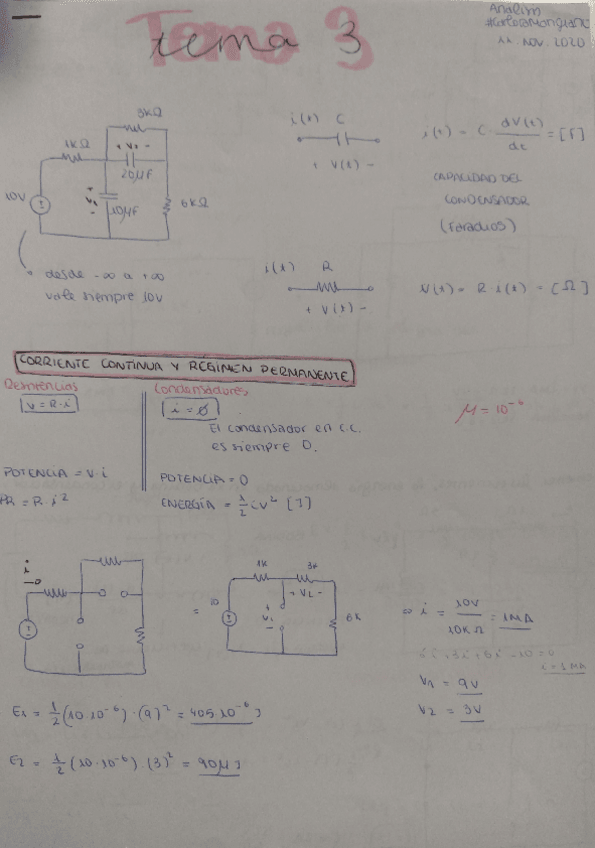 Tema 3
tema 3
11 NOV. 2020
3KΩ
1KΩ
+ V2 -
20μF
10V
+ V1 -
10μF
6KΩ
desde -∞ a +∞
vale siempre 10V
i(t) C
+ V(t) -
i(t) = C · dV(t)/dt = [F]
CAPACIDAD DEL
CONDENSADOR
(Faradios)
i(t) R
+ V(t) -
V(t) = R · i(t) = [Ω]
CORRIENTE CONTINUA Y REGIMEN PERMANENTE
Resistencias
V = R · i
POTENCIA = V · i
PR = R · i²
Condensadores
i = 0
El condensador en C.C.
es siempre 0.
POTENCIA = 0
ENERGÍA = 1/2 c V² [J]
μ = 10⁻⁶
i
=
1K 3K
+ V2 -
10
+ V1 -
6K
⇒ i = 10V/10KΩ = 1MA
1i + 3i + 6i - 10 = 0
i = 1MA
V1 = 9V
V2 = 3V
E1 = 1/2 (10·10⁻⁶) · (9)² = 405·10⁻⁶ J
E2 = 1/2 (20·10⁻⁶) · (3)² = 90μJ